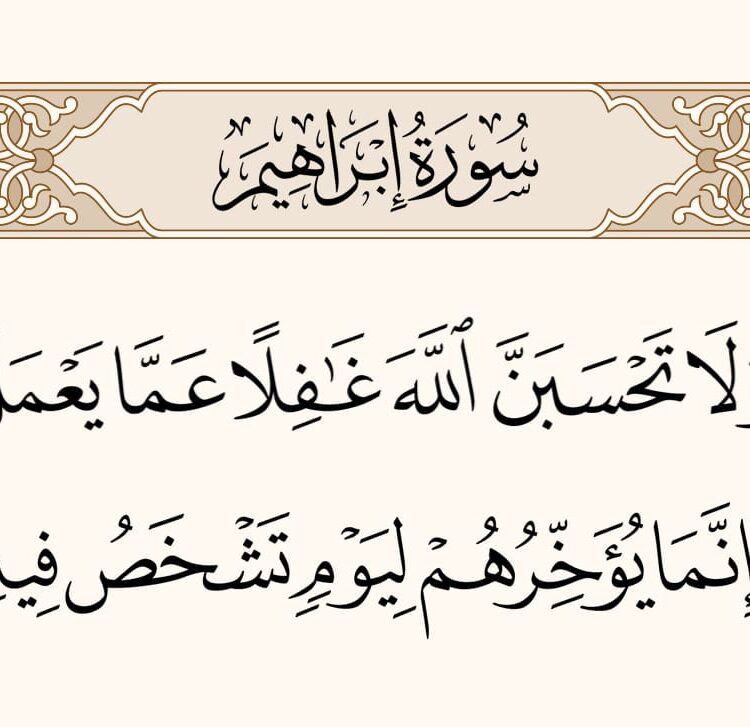 سُورَةُ إِبْرَاهِيمَ
وَلَا تَحْسَبَنَّ ٱللَّهَ غَٰفِلًا عَمَّا يَعْمَل
إِنَّمَا يُؤَخِّرُهُمْ لِيَوْمٍ تَشْخَصُ فِيهِ